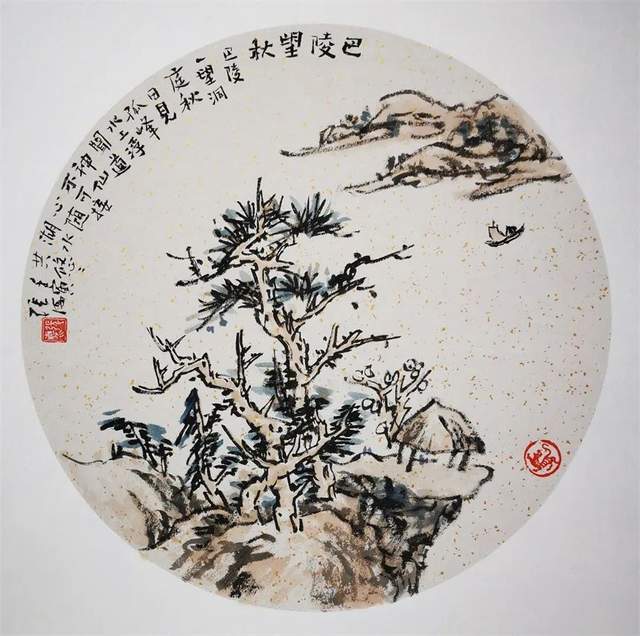 巴陵望秋
巴陵
一望洞
庭秋
日見
孤峰
水上浮
聞道
神仙
不可接
心随
湖水
共悠〻
壬寅